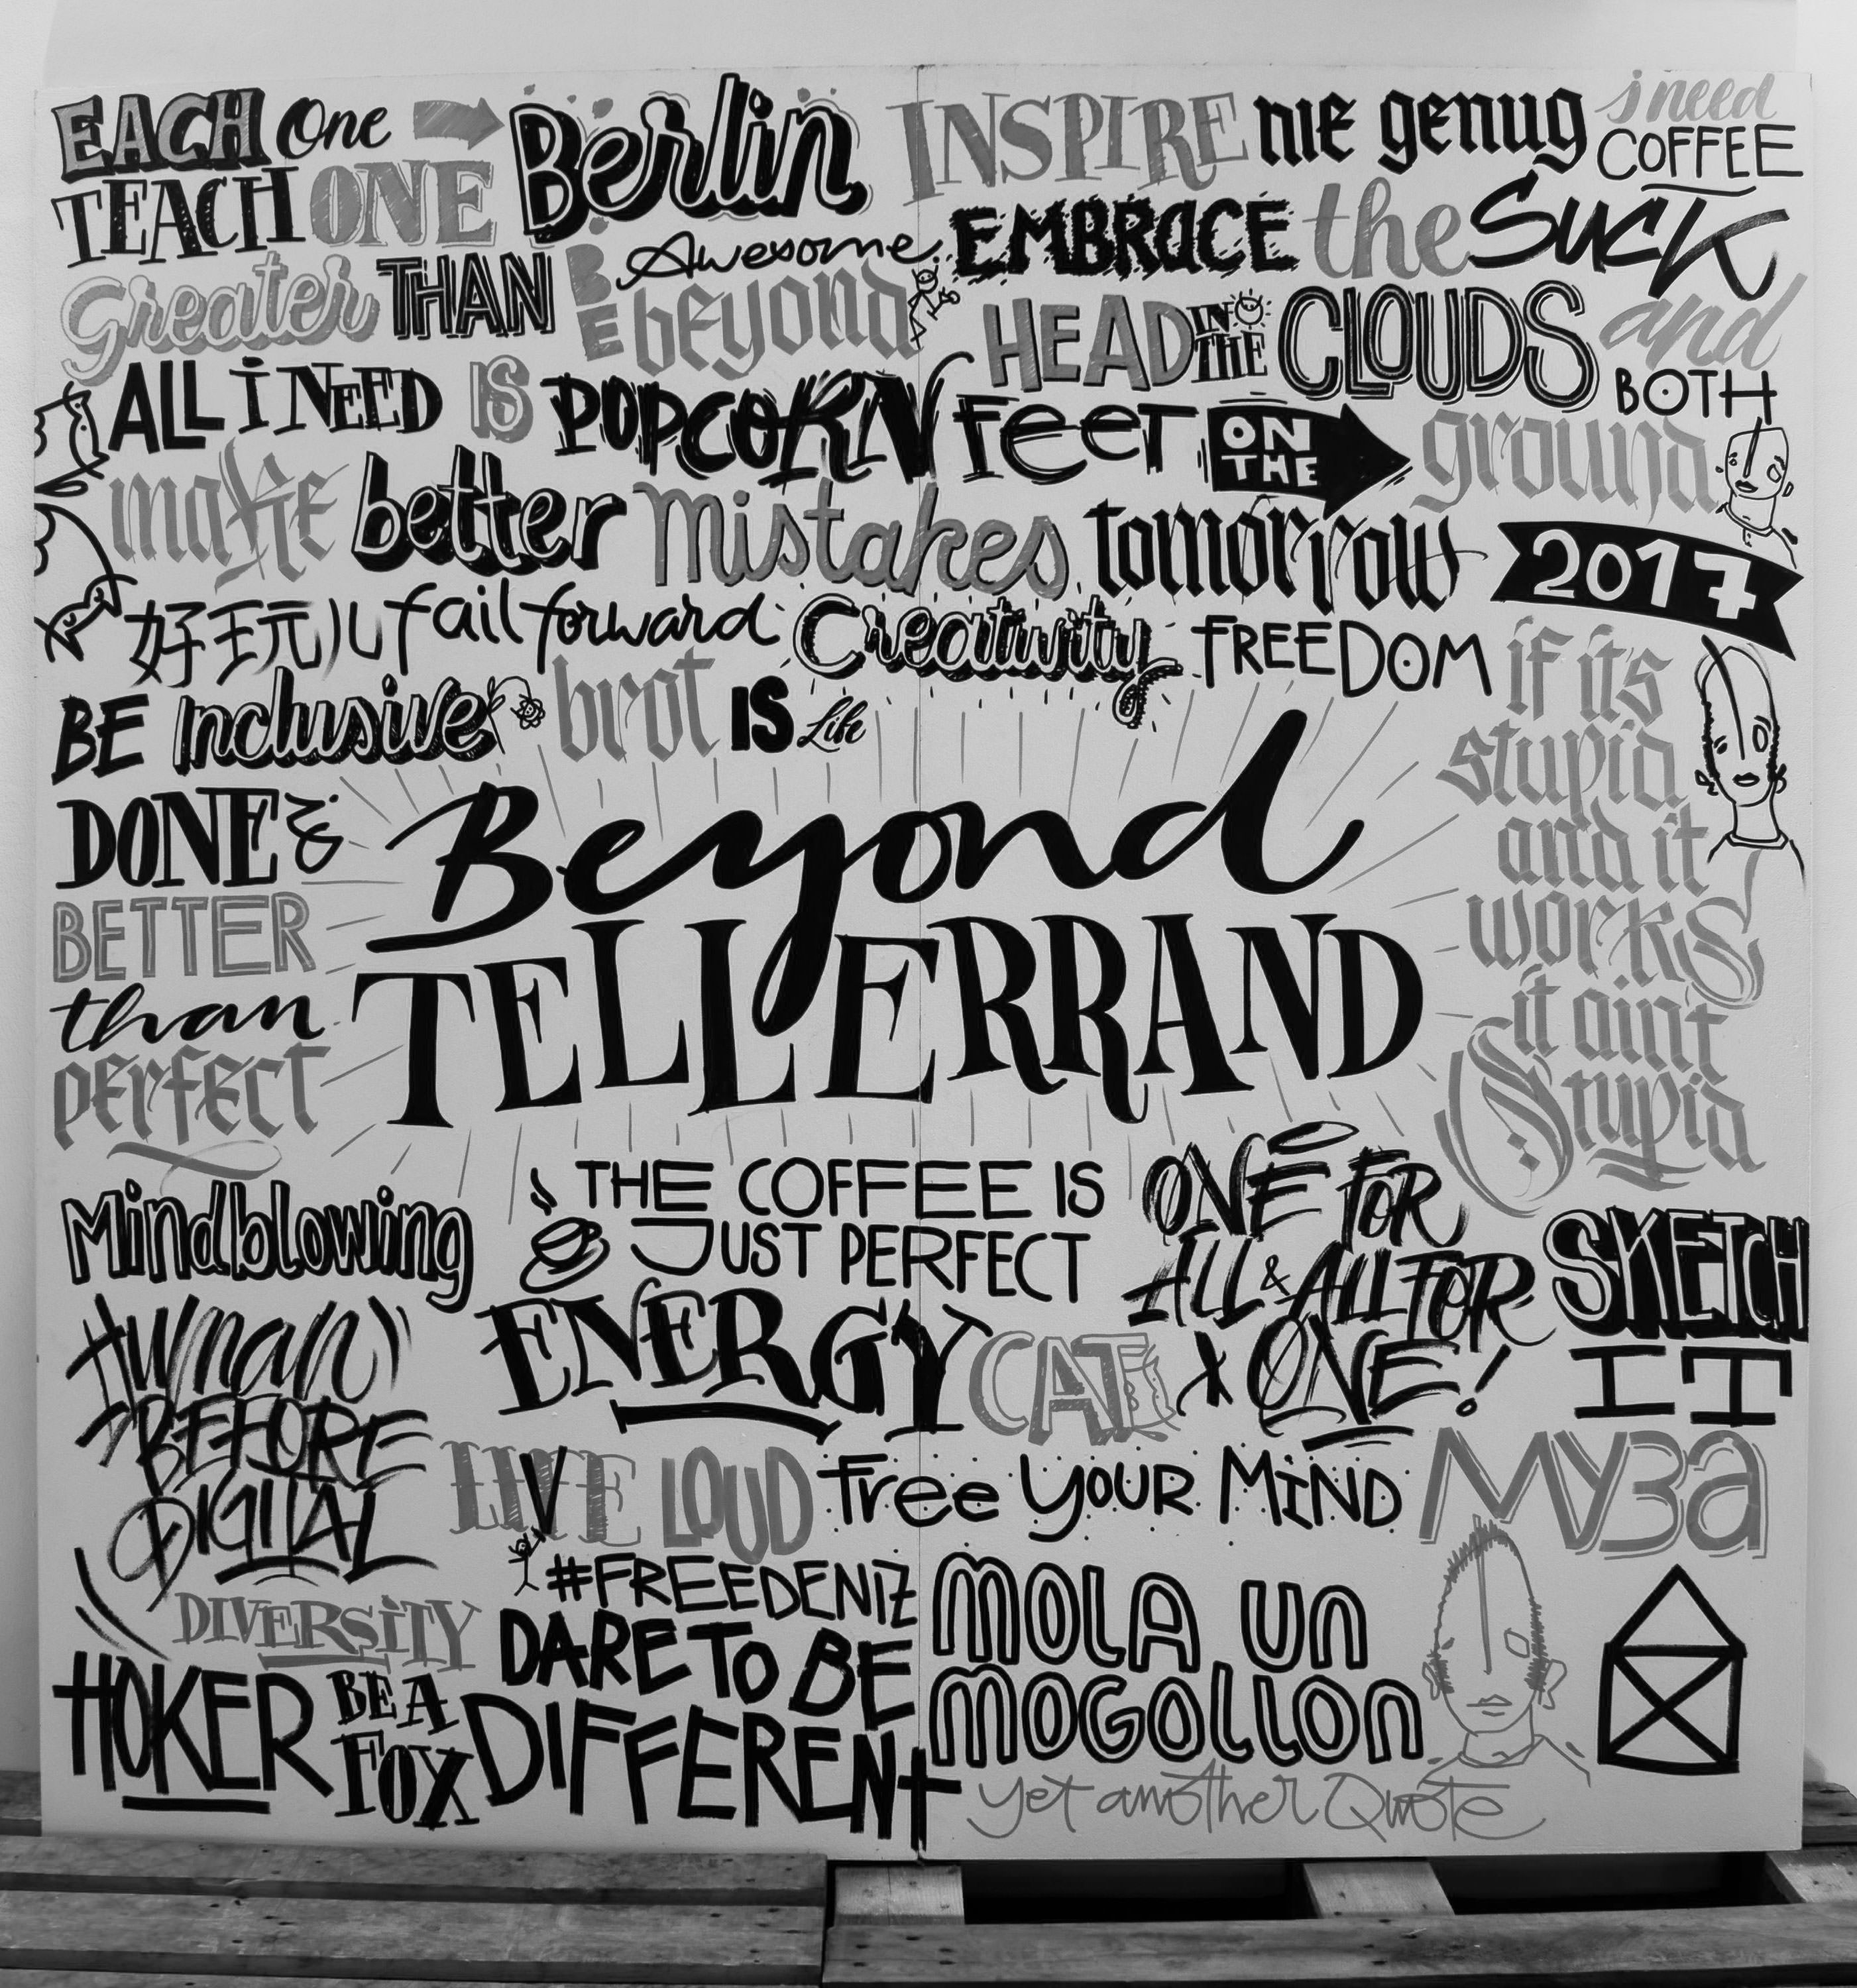 EACH One
TEACH ONE
Berlin
INSPIRE
nie genug
i need
COFFEE
Greater THAN
BE
Awesome
beyond
EMBRACE the Suck
HEAD IN THE CLOUDS and
BOTH
ALL i NEED IS POPCORN
Feet ON THE ground
make better mistakes tomorrow
2017
好玩儿
fail forward
Creativity
FREEDOM
BE Inclusive
brot IS Life
if it's
stupid
and it
works
it ain't
Stupid
DONE
BETTER
than
PERFECT
Beyond
TELLERRAND
Mindblowing
THE COFFEE IS
JUST PERFECT
ONE FOR
ALL & ALL FOR
ONE!
SKETCH
IT
Human
BEFORE
DIGITAL
ENERGY
CAT
LIVE LOUD
Free YOUR MiND
Муза
DIVERSiTY
#FREEDENIZ
DARE TO BE
DIFFERENt
MOLA un
MOGOLLON
HOKER
BE A
FOX
yet another Quote